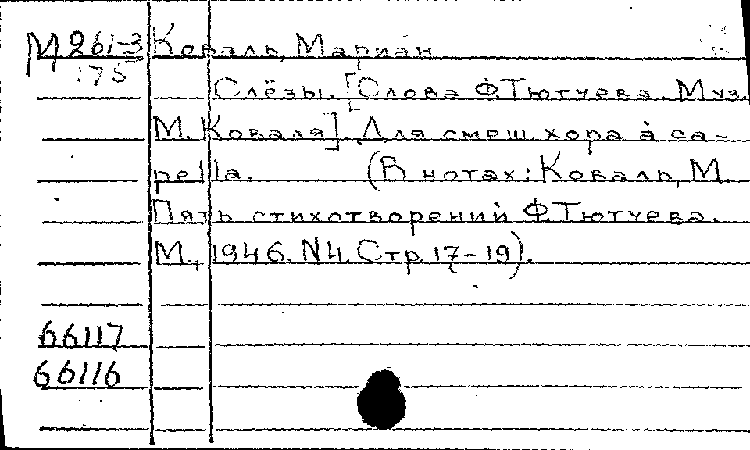 М 261-3 Коваль, Мариан
175
Слёзы. [Слова Ф. Тютчева. Муз.
М. Коваля]. Для смеш. хора à ca-
pella. (В нотах: Коваль, М.
Пять стихотворений Ф. Тютчева.
М., 1946. N4. Стр. 17-19).
66117
66116